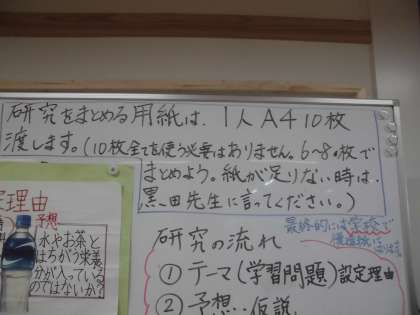 研究をまとめる用紙は、1人A4 10枚
渡します。(10枚全てを使う必要はありません。6〜8枚で
まとめよう。紙が足りない時は、
黒田先生に言ってください。)
定理由
予想
水やお茶と
はちがう栄養
分が入っている
のではないか?
最終的には学校で
研究の流れ
①テーマ(学習問題)設定理由
②予想…仮説